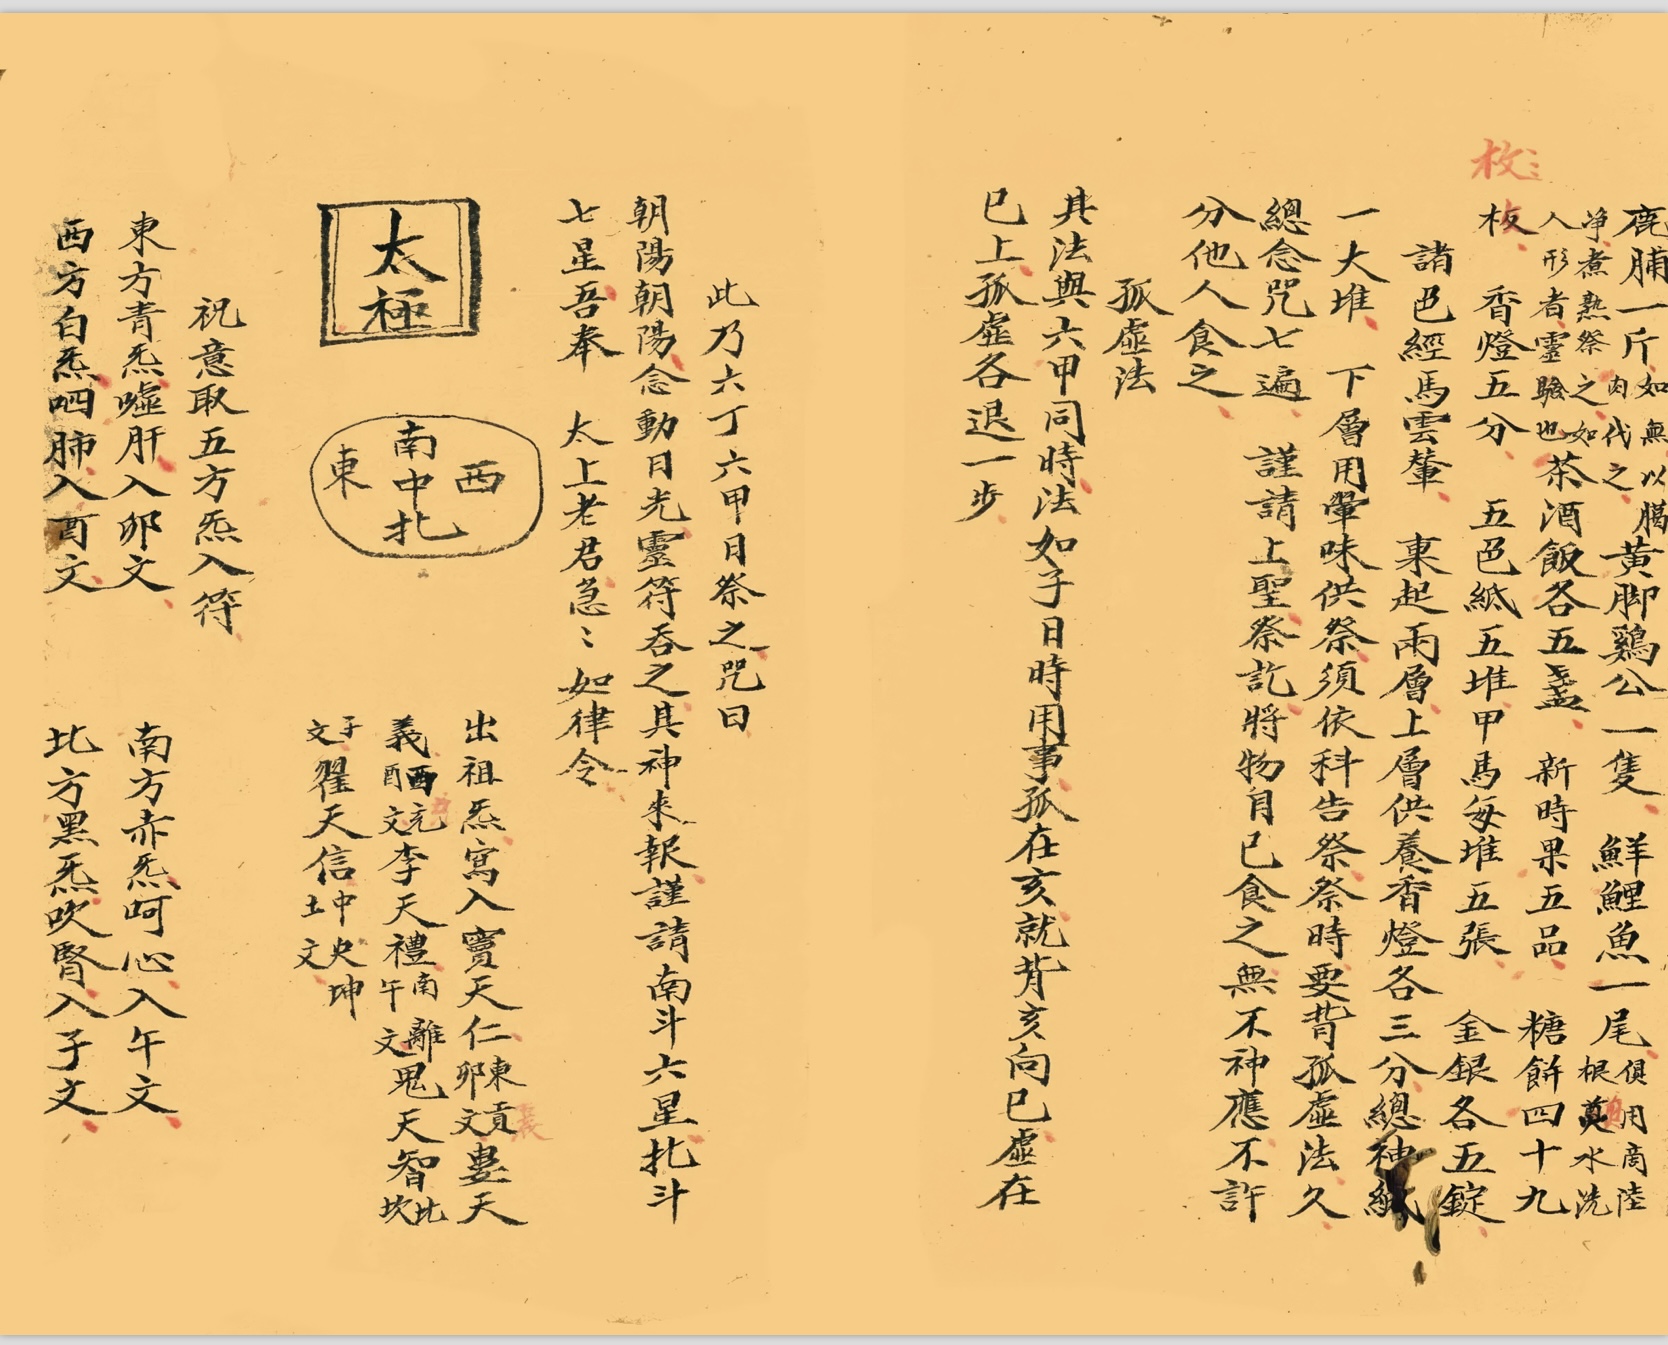 鹿脯一斤如無以臈肉代之黃脚鷄公一隻　鮮鯉魚一尾俱用商陸根奠水洗
淨煮熟祭之如人形者靈驗也茶酒飯各五盞　新時果五品　糖餅四十九
枚〻
板　香燈五分　五色紙五堆甲馬每堆五張　金銀各五錠
諸色經馬雲輦　東起兩層上層供養香燈各三分總神紙
一大堆　下層用暈味供祭須依科告祭祭時要背孤虛法久
總念咒七遍　謹請上聖祭訖將物自已食之無不神應不許
分他人食之
孤虛法
其法與六甲同時法如子日時用事孤在亥就背亥向巳虛在
巳上孤虛各退一步
此乃六丁六甲日祭之咒曰
朝陽朝陽念動日光靈符吞之其神來報謹請南斗六星北斗
七星吾奉　太上老君急〻如律令
太極
南
西
中
東
北
出祖炁寫入竇天仁卯東文貢婁天
義酉文元李天禮南午離文鬼天智北坎
子文翟天信中央土坤文
祝意取五方炁入符
東方青炁噓肝入卯文　南方赤炁呵心入午文
西方白炁呬肺入酉文　北方黑炁吹腎入子文